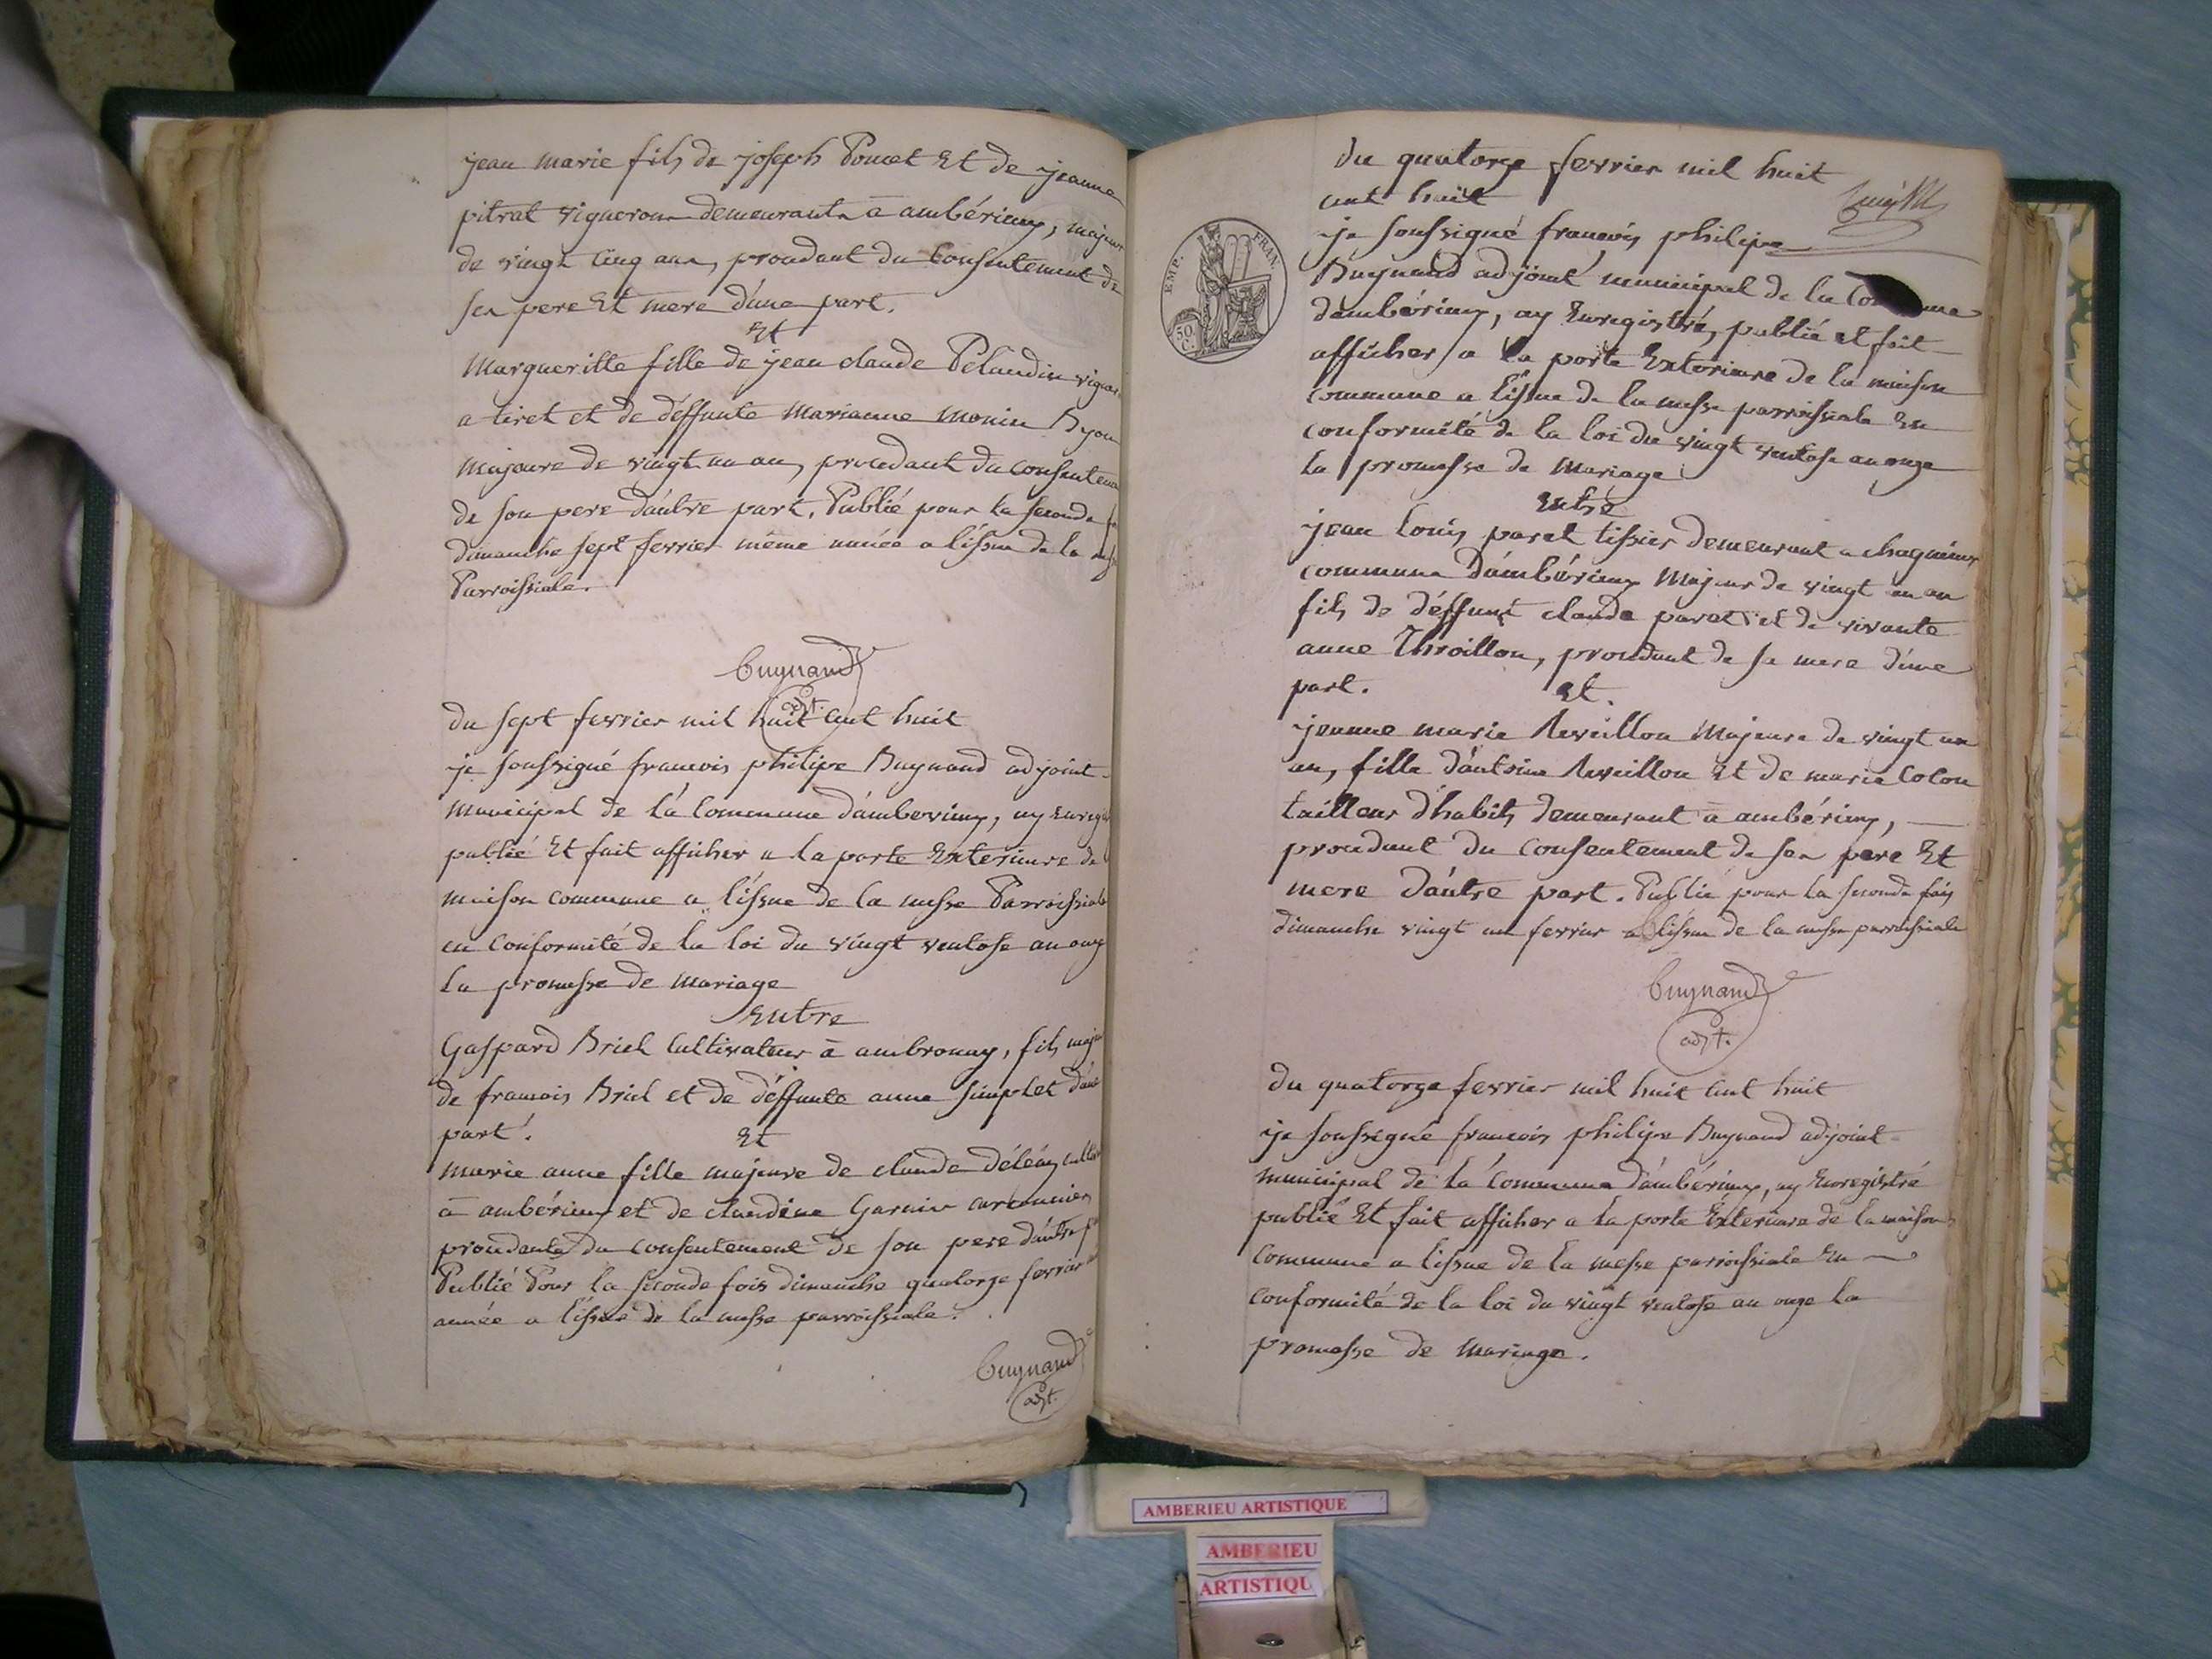 jean marie fils de joseph Pomet Et de jeanne
pitrat vigneron demeurants a ambérieux, majeur
de vingt cinq ans, procedant du Consentement de
ses pere Et mere d'une part.
Et
Margueritte fille de jean claude Pelaudin vigner.
a tiret et de déffunte Marianne Monin Byou
Majeure de vingt un an, procedant du Consentem
de son pere d'autre part. Publié pour la seconde fo
dimanche sept fevrier même année a l'issue de la
Parroissiale.
Buynand
adjt.
du sept fevrier mil huit cent huit
je soussigné francois philipe Buynand adjoint
Municipal de la Commune d'amberieux, ay Enregis
publié Et fait afficher a la porte Exterieure de
Maison commune a l'issue de la messe Parroissiale
en Conformité de la loi du vingt ventose an onze
La promesse de Mariage
Entre
Gaspard Briel Cultivateur à ambronay, fils maje
de francois Briel et de déffunte anne simplet d'une
part.
Et
Marie anne fille majeure de claude déléaz
à ambérieux et de claudine Garnier
procedante du consentement de son pere d'autre p
Publié Pour la seconde fois dimanche quatorze fevrier
année a l'issue de la messe parroissiale.
Buynand
adjt.
du quatorze fevrier mil huit
cent huit
je soussigné francois philipe
EMP. FRAN
50 C.
Buynand adjoint municipal de la Commune
d'ambérieux, ay Enregistré, publié et fait
afficher a la porte Exterieure de la maison
Commune a l'issue de la messe parroissiale En
conformité de la loi du vingt ventose an onze
La promesse de Mariage
Entre
jean Louis paret tissier demeurant a
commune d'ambérieux Majeur de vingt un an
fils de déffunt claude paret et de vivante
anne Thévoillon, procedant de sa mere d'une
part. Et.
jeanne marie Reveillon Majeure de vingt un
an, fille d'antoine Reveillon Et de marie Colon
tailleur d'habits demeurant à ambérieux,
procedant du Consentement de ses pere Et
mere d'autre part. Publié pour la seconde fois
dimanche vingt un fevrier a l'issue de la messe parroissiale
Buynand
adjt.
du quatorze fevrier mil huit cent huit
je soussigné francois philipe Buynand adjoint
municipal de la Commune d'ambérieux, ay Enregistré
publié Et fait afficher a la porte Exterieure de la maison
Commune a l'issue de la messe parroissiale En
Conformité de la loi du vingt ventose an onze la
promesse de mariage.
AMBERIEU ARTISTIQUE
AMBERIEU
ARTISTIQU